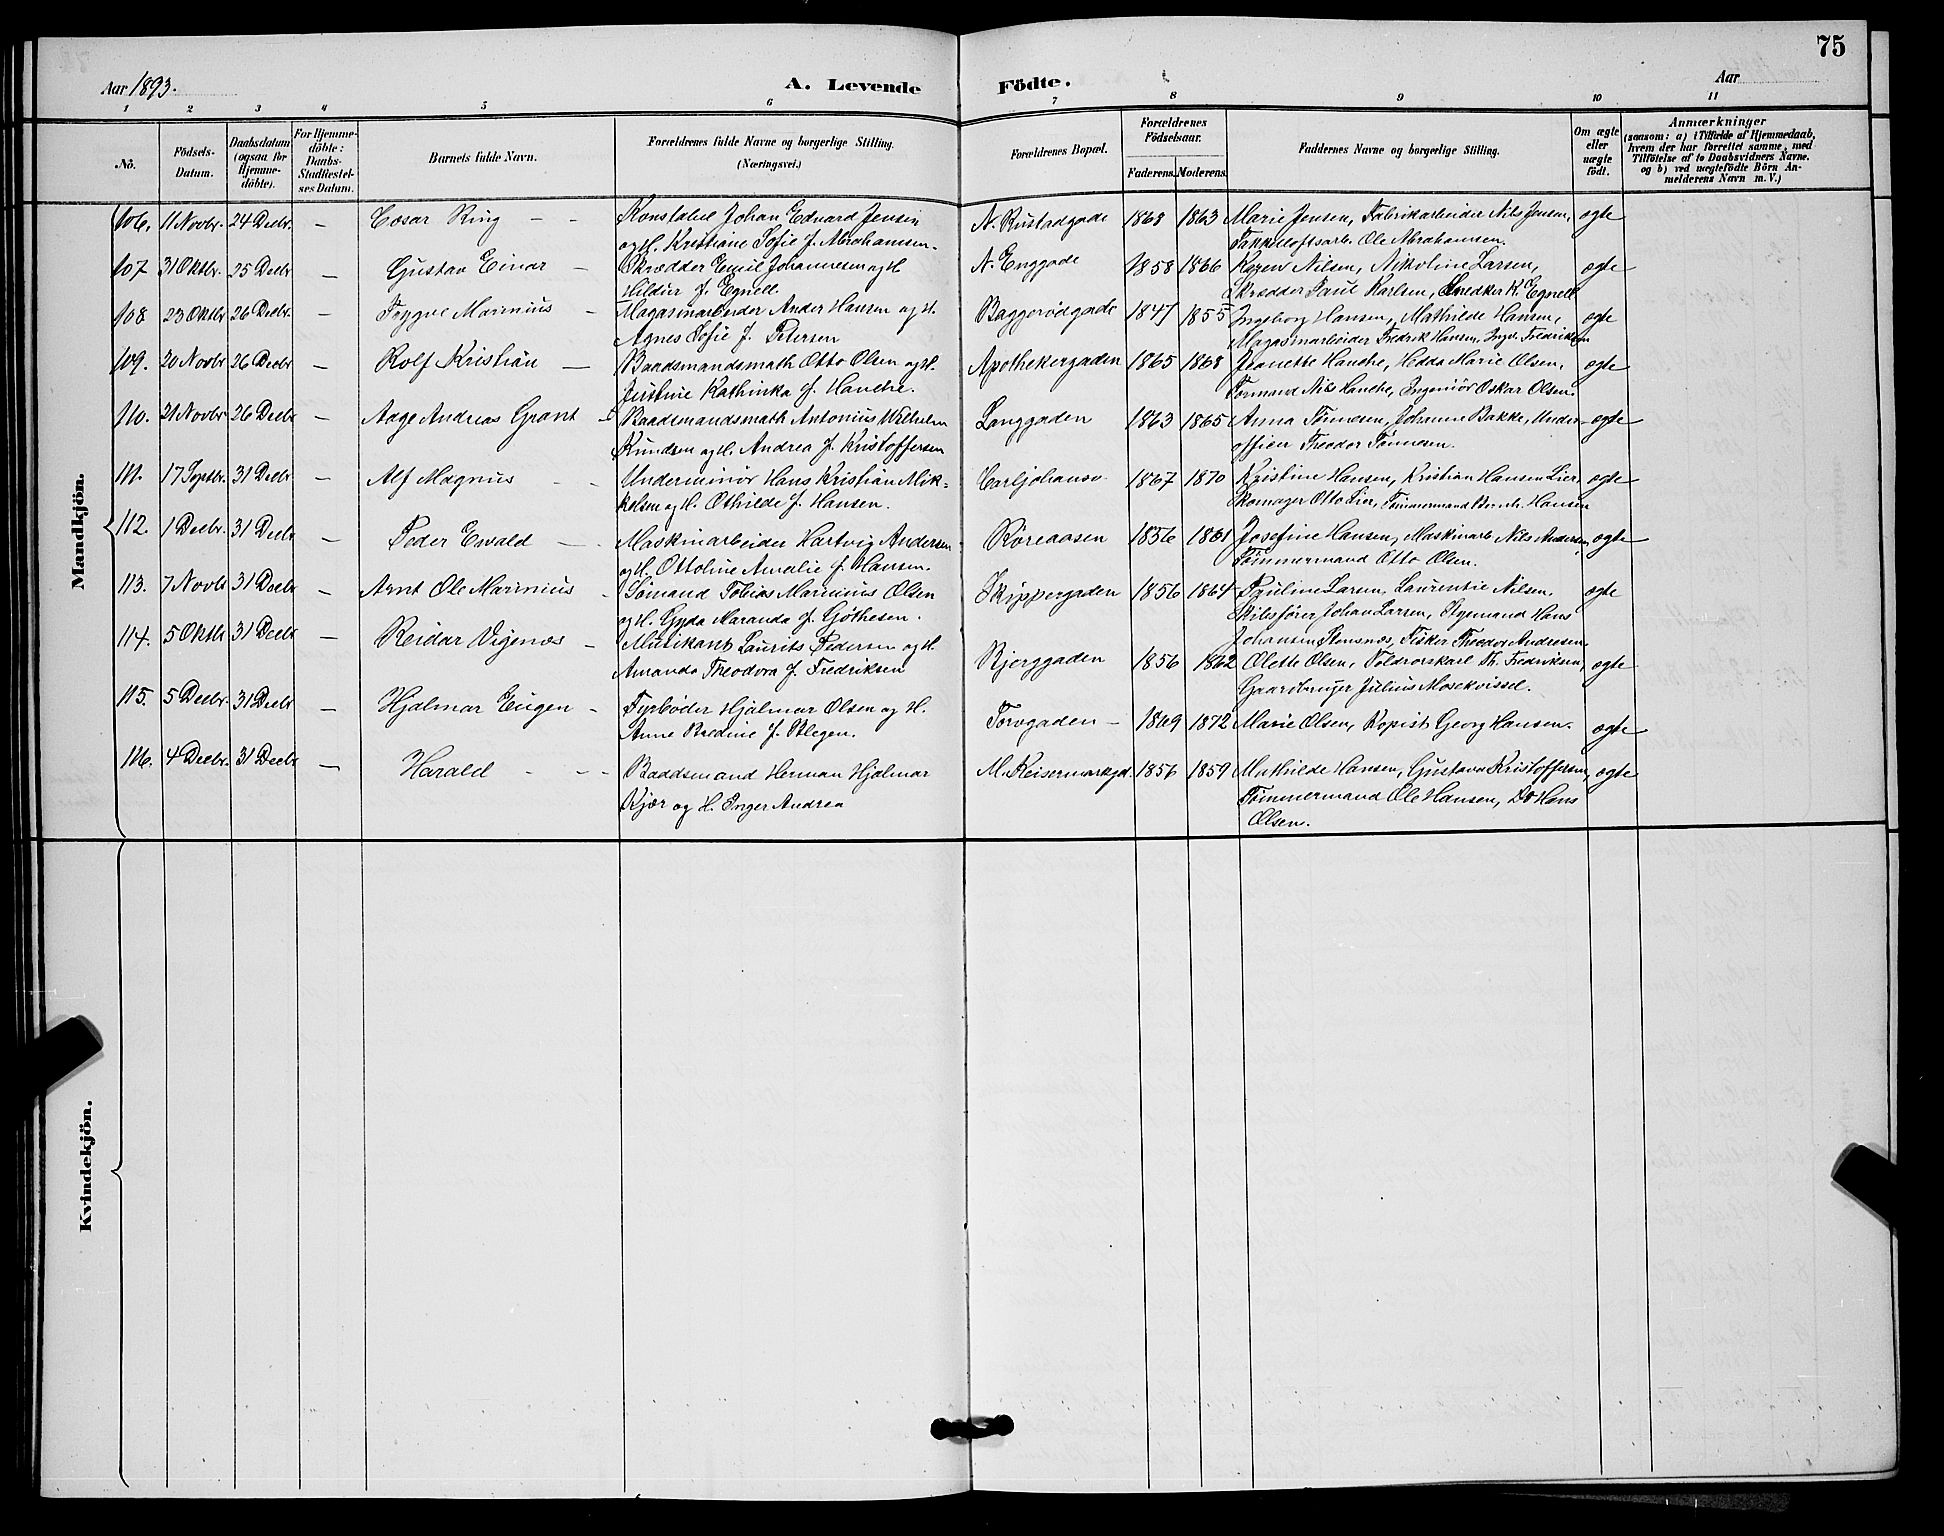 75
Aar 1893.
A. Levende Födte.
Aar
1 2 3 4 5 6 7 8 9 10 11
No.
Födsels-Datum.
Daabsdatum (ogsaa for Hjemme-döbte).
For Hjemme-döbte: Daabs-Stadfæstel-ses Datum.
Barnets fulde Navn.
Forældrenes fulde Navne og borgerlige Stilling. (Næringsvei.)
Forældrenes Bopæl.
Forældrenes Födselsaar.
Faderens. Moderens.
Faddernes Navne og borgerlige Stilling.
Om ægte eller uægte födt.
Anmærkninger (saasom: a) i Tilfælde af Hjemmedaab, hvem der har forrettet samme, med Tilföielse af to Daabsvidners Navne, og b) ved uægtefödte Börn An-melderens Navn m. V.)
Mandkjön.
106. 11 Novbr. 24 Decbr. — Cæsar Ring — — Konstabel Johan Edvard Jensen N. Rustadgade 1868 1863 Marie Jensen, Fabrikarbeider Nils Jensen, ægte
og H. Kristiane Sofie f. Abrahamsen. Takkeloftsarb. Ole Abrahamsen.
107 31 Oktbr. 25 Decbr — Gustav Einar — Skrædder Emil Johannesen og H N. Enggade 1858 1866 Karen Nilsen, Nikoline Larsen, ægte
Hildur f. Egnell. Skrædder Paul Karlsen, Snedker K. Egnell
108 23 Oktbr 26 Decbr. — Trygve Marinius — Magasinarbeider Ander Hansen og H. Baggerødgade 1847 1855 Ingeborg Hansen, Mathilde Hansen, ægte
Agnes Sofie f. Petersen Magasinarbeider Fredrik Hansen, Ingv. Fredriksen
109. 20 Novbr 26 Decbr — Rolf Kristian — Baadsmandsmath Otto Olsen og H. Apothekergaden 1865 1868 Jeanette Hanche, Hedda Marie Olsen, ægte
Justine Kathinka f. Hanche. Formand Nils Hanche, Ingeniör Oskar Olsen.
110. 21 Novbr. 26 Decbr — Aage Andreas Grant — Baadsmandsmath Antonius Wilhelm Langgaden 1863 1865 Anna Tönnesen, Johanne Bakke, Under- ægte
Knudsen og H. Andrea f. Kristoffersen officier Theodor Tönnesen.
111. 17 Septbr. 31 Decbr — Alf Magnus — — Underminör Hans Kristian Mik- Carljohansv. 1867 1870 Kristine Hansen, Kristian Hansen Lier ægte
kelsen og H. Othilde f. Hansen. Skomager Otto Lier, Tömmermand Bernh. Hansen
112. 1 Decbr. 31 Decbr — Peder Ewald — Maskinarbeider Hartvig Andersen Röreaasen 1856 1861 Josefine Hansen, Maskinarb Nils Andersen, ægte
og H. Ottoline Amalie f. Hansen. Tömmermand Otto Olsen.
113. 7 Novbr 31 Decbr — Arnt Ole Marinius — Sömand Tobias Marinius Olsen Skippergaden 1856 1864 Pauline Larsen, Laurentie Nilsen, ægte
og H. Gyda Maranda f. Göthesen. Skibsförer Johan Larsen, Styrmand Hans
114. 5 Oktbr 31 Decbr — Reidar Vigenæs — Musikant Laurits Pedersen og H. Johansen Stensnæs, Fisker Theodor Andresen.
Amanda Theodora f. Fredriksen Bjerggaden 1856 1862 Olette Olsen, Toldrorskarl Th. Fredriksen, ægte
Gaardbruger Julius Mosekvissel.
115. 5 Decbr. 31 Decbr — Hjalmar Eugen — Fyrböder Hjalmar Olsen og H. Torvgaden — 1869 1872 Marie Olsen, Kopist Georg Hansen. ægte
Anne Bredine f. Blegen.
116. 4 Decbr. 31 Decbr — Harald — — Baadsmand Herman Hjalmar M. Keisermarkgd. 1856 1859 Mathilde Hansen, Gustava Kristoffersen, ægte
Kjær og H. Inger Andrea Tömmermand Ole Hansen, Do Hans
Olsen.
Kvindekjön.